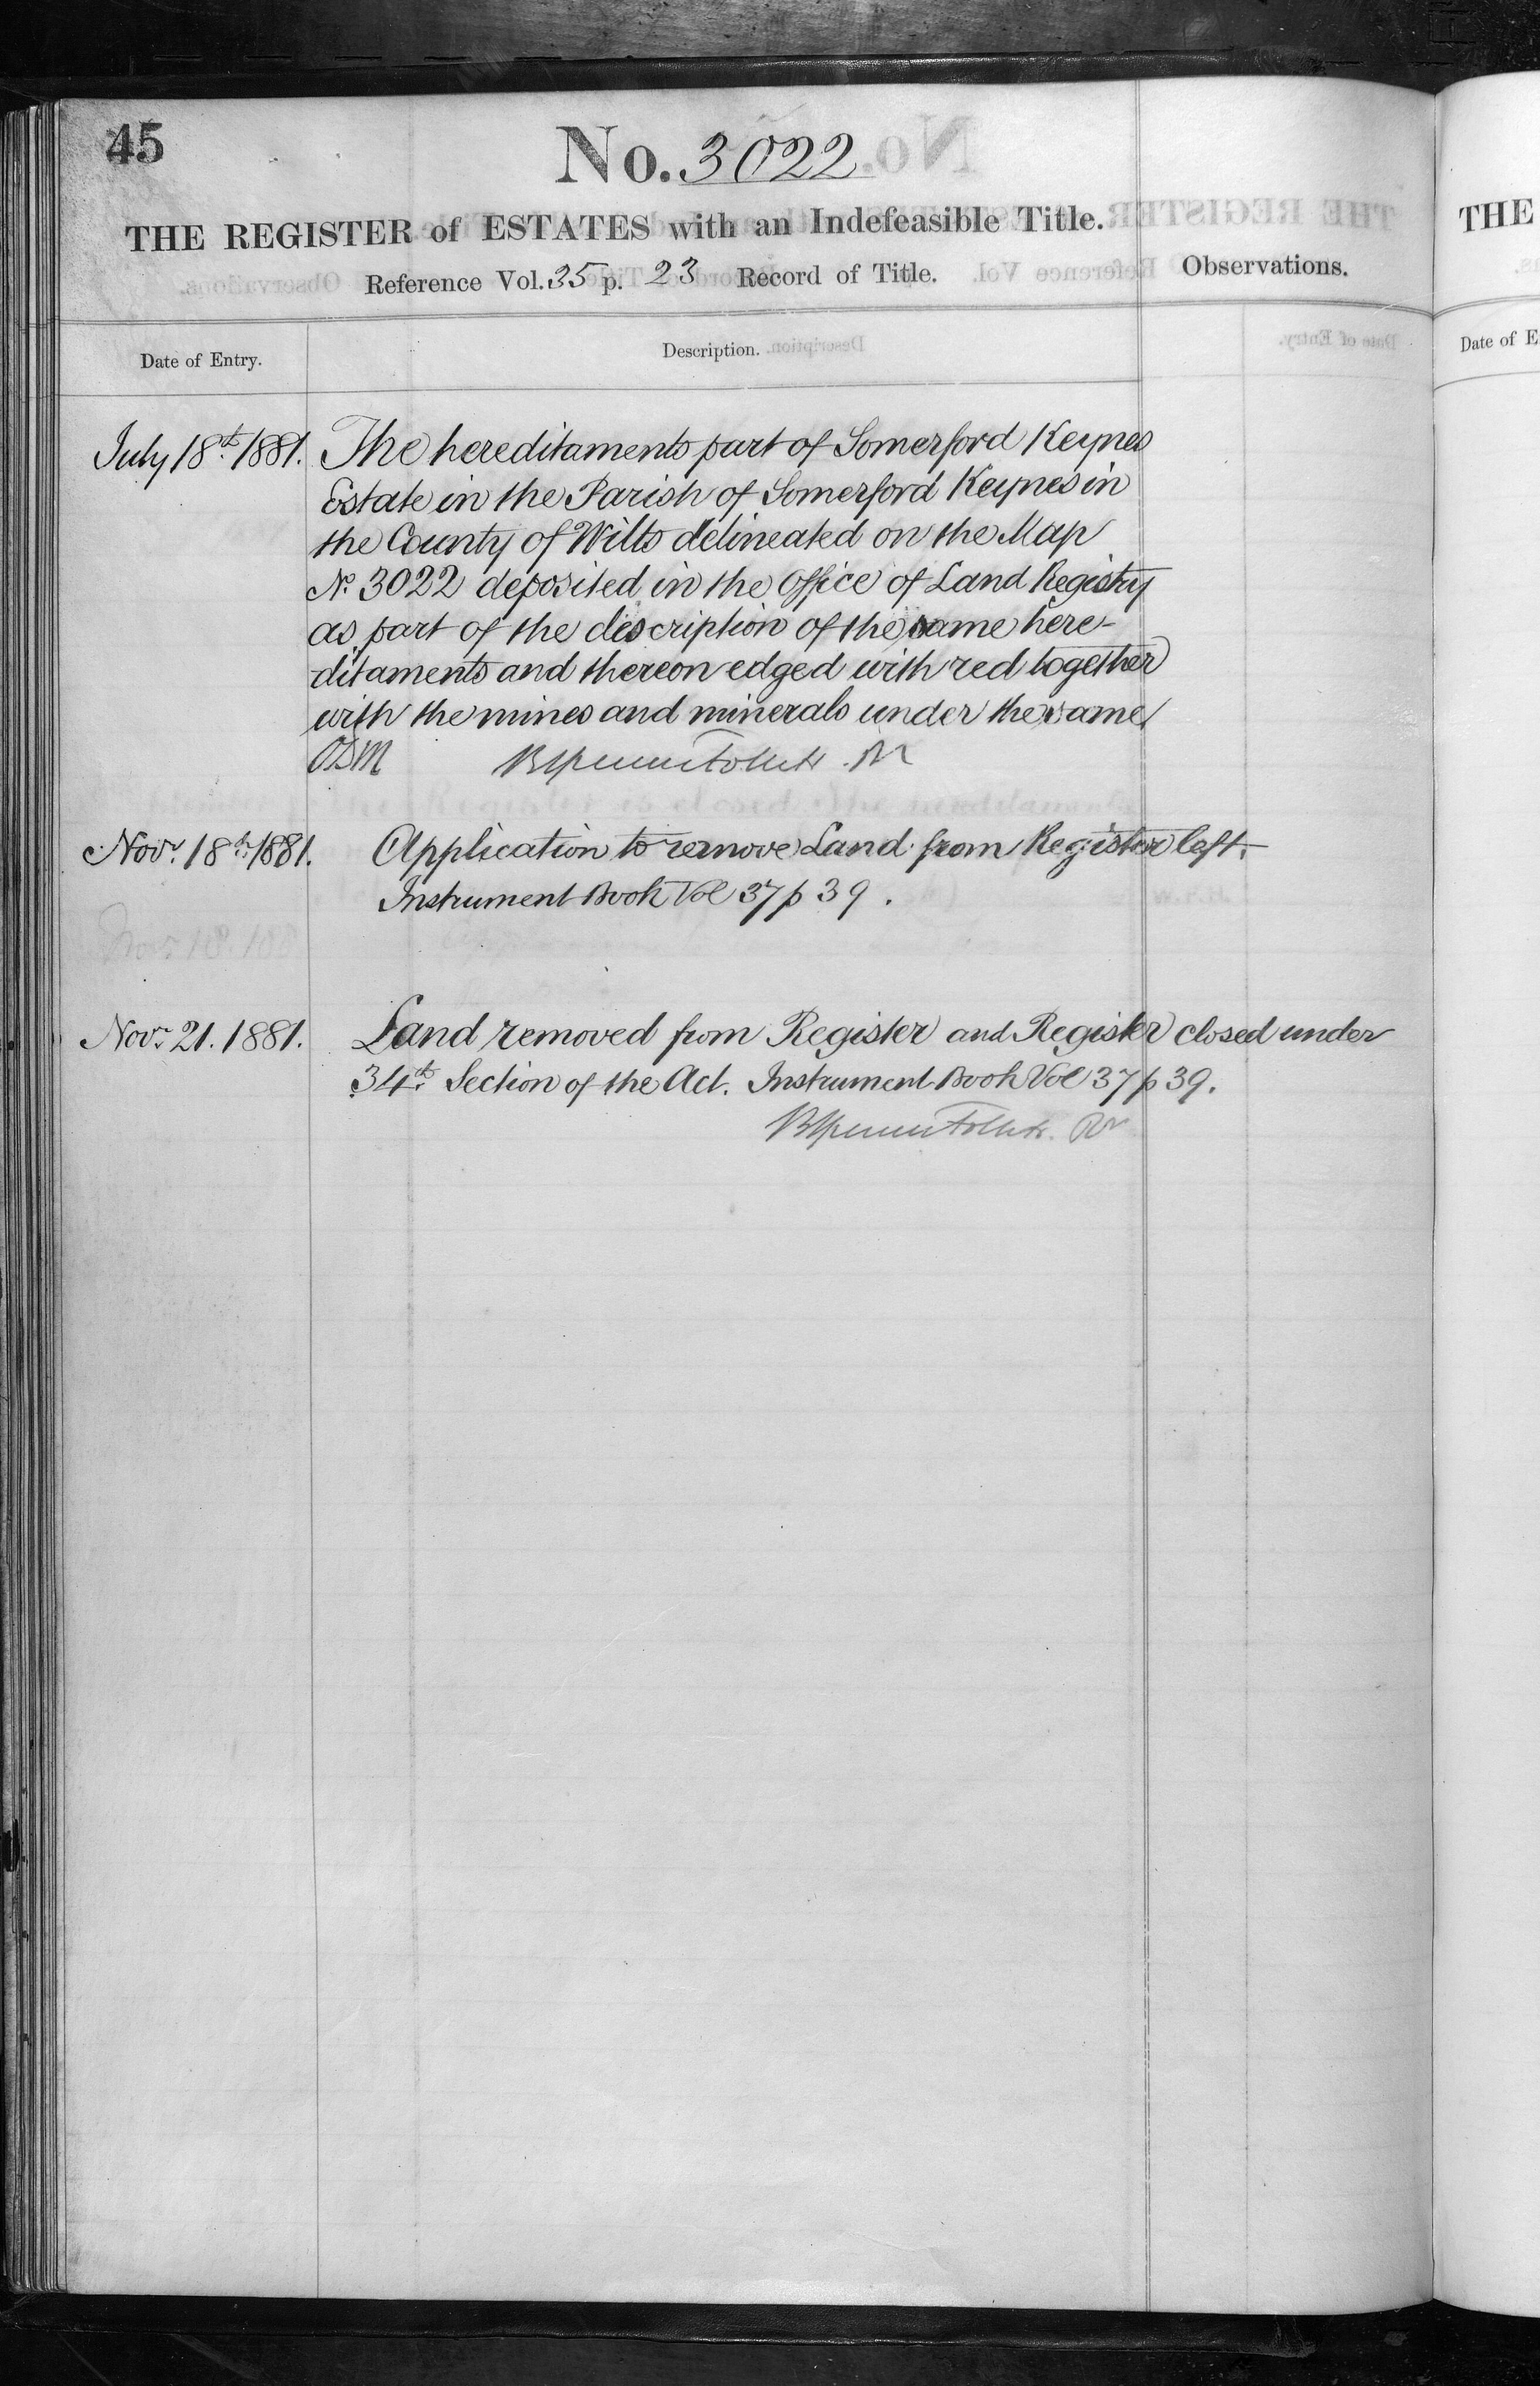 45
No. 3022
THE REGISTER of ESTATES with an Indefeasible Title.
Reference Vol. 35 p. 23 Record of Title. Observations.
Date of Entry. Description.
July 18th 1881. The hereditaments part of Somerford Keynes
Estate in the Parish of Somerford Keynes in
the County of Wilts delineated on the Map
No. 3022 deposited in the Office of Land Registry
as part of the description of the same here-
ditaments and thereon edged with red together
with the mines and minerals under the same
Novr. 18th 1881. Application to remove Land from Register left.
Instrument Book Vol 37 p 39.
Novr. 21. 1881. Land removed from Register and Register closed under
34th Section of the Act. Instrument Book Vol 37 p 39.
THE
Date of E